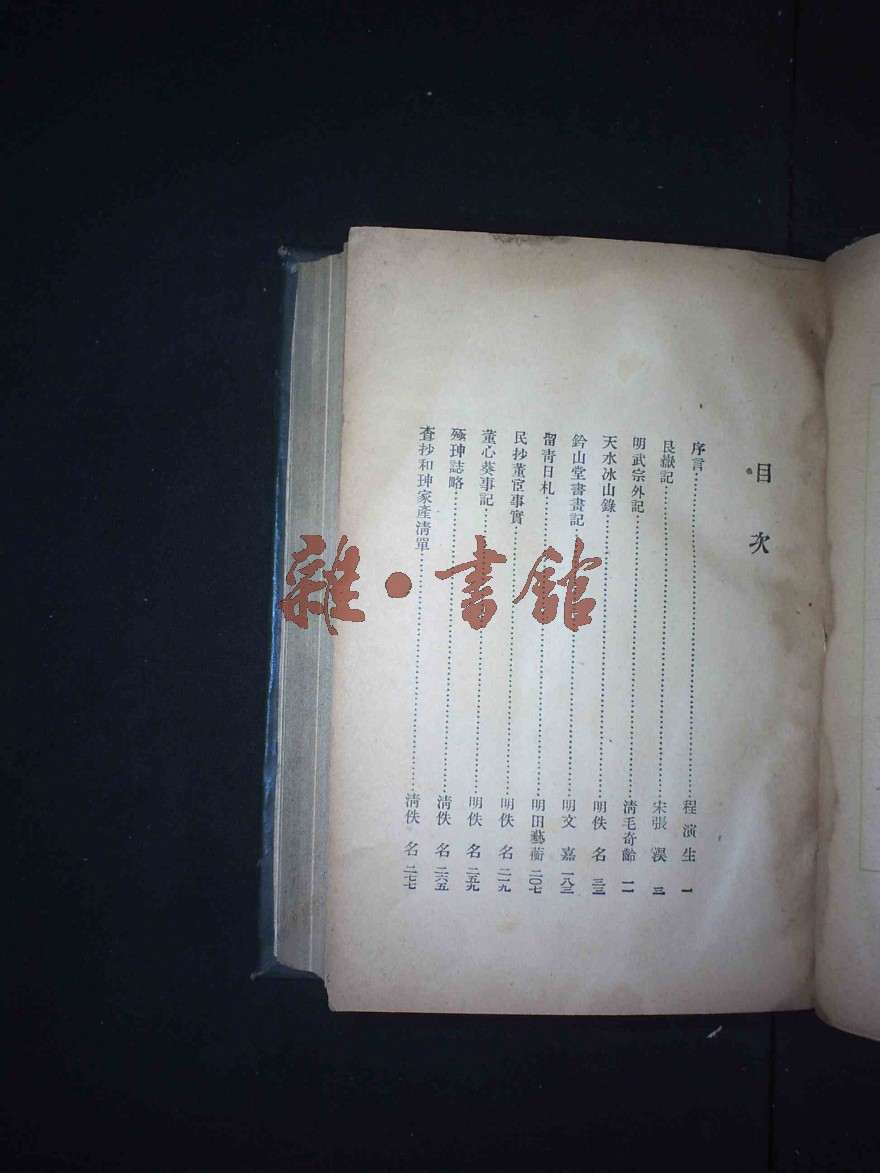 目次
序言……程演生 一
艮嶽記……宋張淏 三
明武宗外記……清毛奇齡 一一
天水冰山錄……明佚名 三三
鈐山堂書畫記……明文嘉 一八三
留青日札……明田藝蘅 二〇七
民抄董宦事實……明佚名 二一九
董心葵事記……明佚名 二五九
殛珅誌略……清佚名 二六五
查抄和珅家產清單……清佚名 二七七
雜·書館